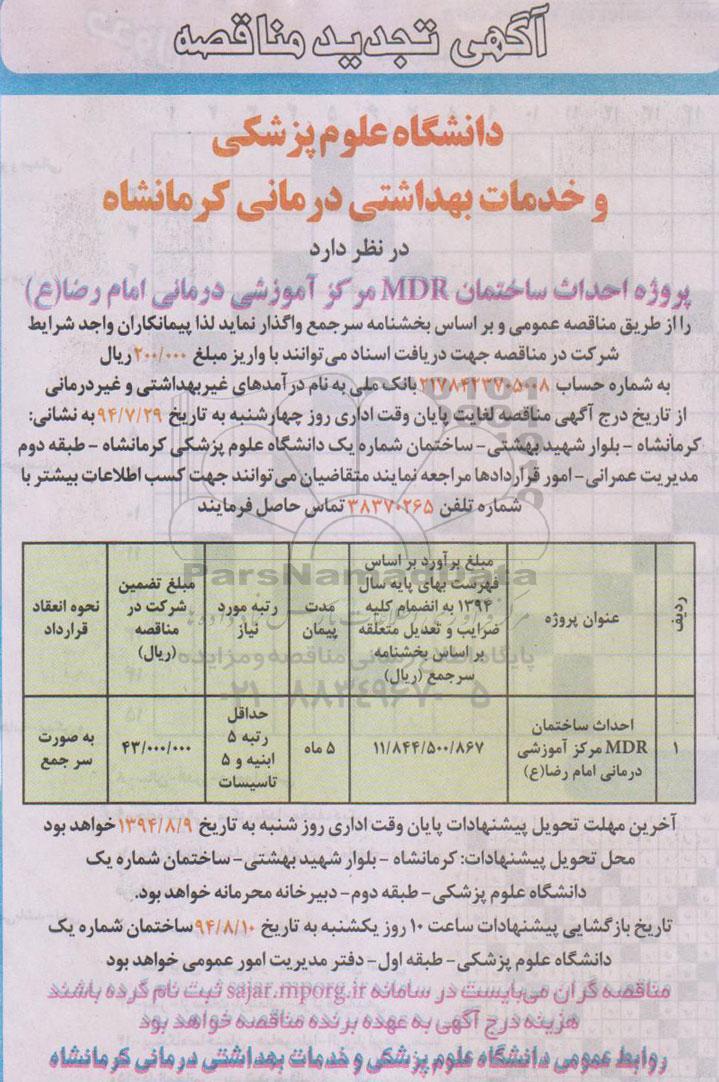 آگهی تجدید مناقصه
دانشگاه علوم پزشکی
و خدمات بهداشتی درمانی کرمانشاه
در نظر دارد
پروژه احداث ساختمان MDR مرکز آموزشی درمانی امام رضا(ع)
را از طریق مناقصه عمومی و بر اساس بخشنامه سرجمع واگذار نماید لذا پیمانکاران واجد شرایط
شرکت در مناقصه جهت دریافت اسناد می توانند با واریز مبلغ ۲۰۰/۰۰۰ ریال
به شماره حساب ۲۱۷۸۴۲۳۷۰۵۰۰۸ بانک ملی به نام درآمدهای غیربهداشتی و غیردرمانی
از تاریخ درج آگهی مناقصه لغایت پایان وقت اداری روز چهارشنبه به تاریخ ۹۴/۷/۲۹ به نشانی:
کرمانشاه - بلوار شهید بهشتی - ساختمان شماره یک دانشگاه علوم پزشکی کرمانشاه - طبقه دوم
مدیریت عمرانی - امور قراردادها مراجعه نمایند متقاضیان می توانند جهت کسب اطلاعات بیشتر با
شماره تلفن ۳۸۳۷۰۲۶۵ تماس حاصل فرمایند
ردیف
عنوان پروژه
مبلغ برآورد بر اساس
فهرست بهای پایه سال
۱۳۹۴ به انضمام کلیه
ضرایب و تعدیل متعلقه
بر اساس بخشنامه
سرجمع (ریال)
مدت
پیمان
رتبه مورد
نیاز
مبلغ تضمین
شرکت در
مناقصه
(ریال)
نحوه انعقاد
قرارداد
۱
احداث ساختمان
MDR مرکز آموزشی
درمانی امام رضا(ع)
۱۱/۸۴۴/۵۰۰/۸۶۷
۵ ماه
حداقل
رتبه ۵
ابنیه و ۵
تاسیسات
۴۳/۰۰۰/۰۰۰
به صورت
سر جمع
آخرین مهلت تحویل پیشنهادات پایان وقت اداری روز شنبه به تاریخ ۱۳۹۴/۸/۹ خواهد بود
محل تحویل پیشنهادات: کرمانشاه - بلوار شهید بهشتی - ساختمان شماره یک
دانشگاه علوم پزشکی - طبقه دوم - دبیرخانه محرمانه خواهد بود.
تاریخ بازگشایی پیشنهادات ساعت ۱۰ روز یکشنبه به تاریخ ۹۴/۸/۱۰ ساختمان شماره یک
دانشگاه علوم پزشکی - طبقه اول - دفتر مدیریت امور عمومی خواهد بود
مناقصه گران می بایست در سامانه sajar.mporg.ir ثبت نام کرده باشند
هزینه درج آگهی به عهده برنده مناقصه خواهد بود
روابط عمومی دانشگاه علوم پزشکی و خدمات بهداشتی درمانی کرمانشاه
ParsNamadData
پایگاه اطلاع رسانی مناقصه و مزایده
۰۲۱-۸۸۳۴۹۶۷۰-۵